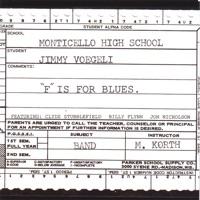 GRADE
STUDENT ALPHA CODE
SCHOOL
MONTICELLO HIGH SCHOOL
STUDENT
JIMMY VOEGELI
COMMENTS:
"F" IS FOR BLUES.
FEATURING: CLYDE STUBBLEFIELD BILLY FLYNN JON NICHOLSON
PARENTS ARE URGED TO CALL THE TEACHER, COUNSELOR OR PRINCIPAL
FOR AN APPOINTMENT IF FURTHER INFORMATION IS DESIRED.
SUBJECT INSTRUCTOR
1ST. SEM.
2ND. SEM.
FULL YEAR
BAND M. KORTH
PARKER SCHOOL SUPPLY CO.